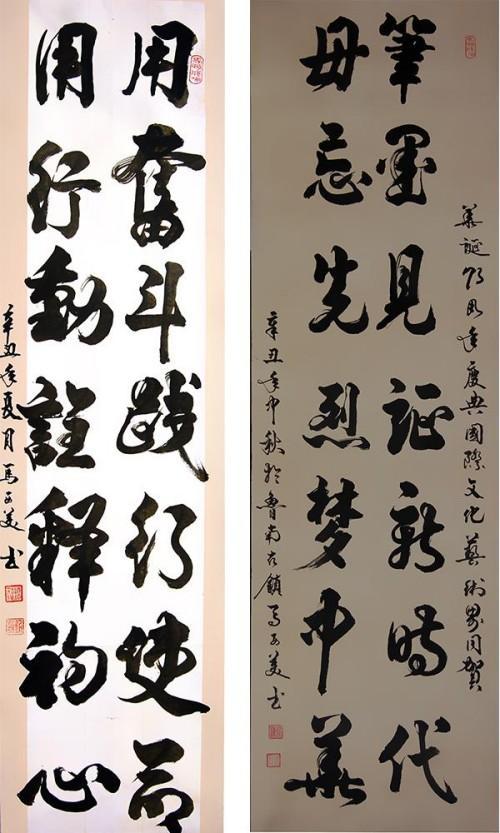 用奮斗踐行使命
用行動詮释初心
辛丑年夏月馬玉美书
華誕72周年慶典國際文化藝術界同賀
筆墨見証新時代
毋忘先烈梦中華
辛丑年中秋於魯南古鎮馬玉美书